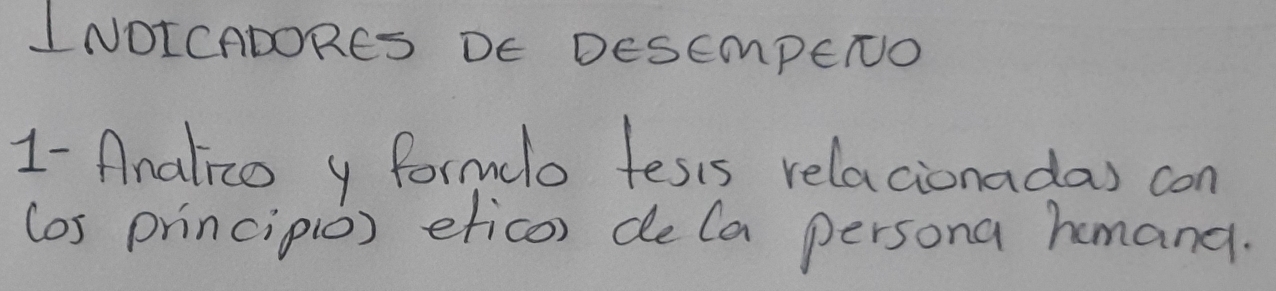 INDICADORES DE DESEMPEÑO
1- Analizo y formulo tesis relacionadas con
los principios eticos de la persona humana.